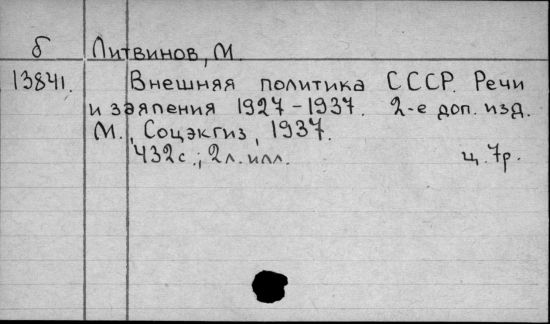 б Литвинов, М.
13841. Внешняя политика СССР. Речи
и заяления 1927-1937. 2-е доп. изд.
М., Соцэкгиз, 1937.
432с.; 2л.илл. ц. 7р.